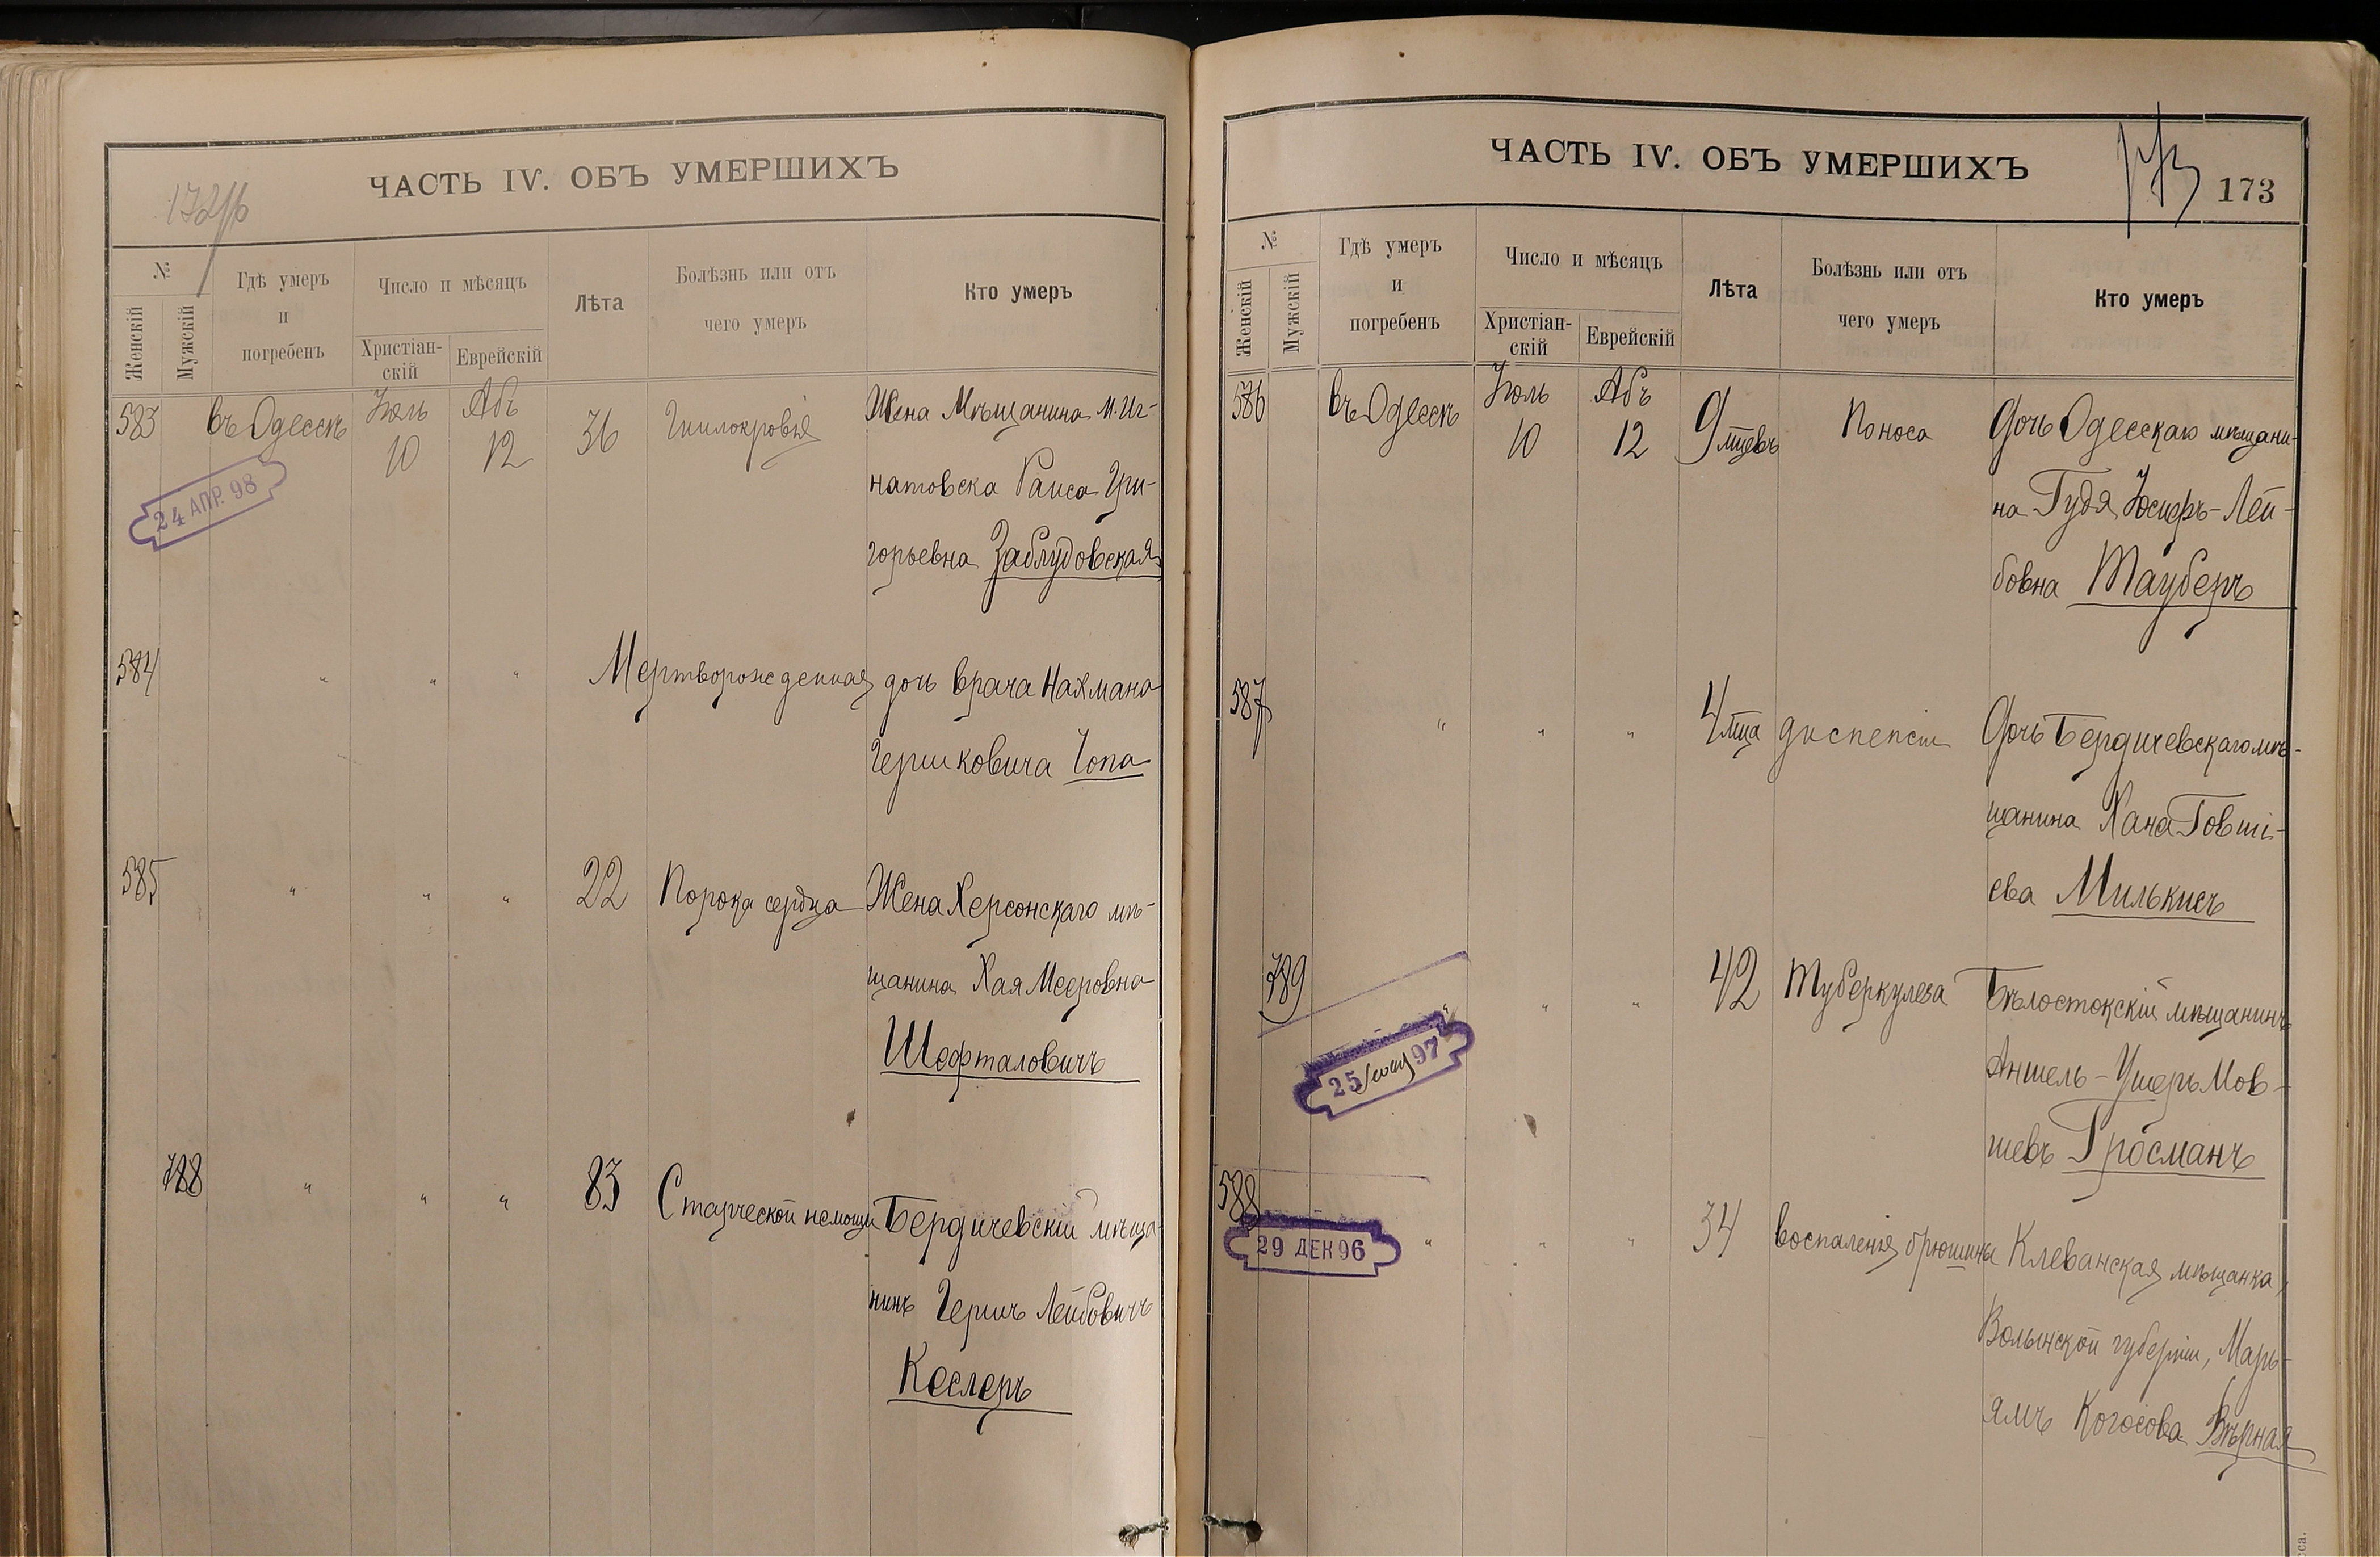 ЧАСТЬ IV. ОБЪ УМЕРШИХЪ
№
Женскій
Мужскій
Гдѣ умеръ
и
погребенъ
Число и мѣсяцъ
Христіан-
скій
Еврейскій
Лѣта
Болѣзнь или отъ
чего умеръ
Кто умеръ
583 въ Одессѣ Іюль 10 Абъ 12 36 Гнилокровія Жена Мѣщанина М. Иг-
24 АПР. 98
натовска Раиса Гри-
горьевна Заблудовская
584 " " " Мертворожденная дочь врача Нахмана
Гершковича Чопа
585 " " " 22 Порока сердца Жена Херсонскаго мѣ-
щанина Хая Мееровна
Шефталовичъ
788 " " " 83 Старческой немощи Бердичевскій мѣща-
нинъ Гершъ Лейбовичъ
Кеслеръ
ЧАСТЬ IV. ОБЪ УМЕРШИХЪ
173
173
№
Женскій
Мужскій
Гдѣ умеръ
и
погребенъ
Число и мѣсяцъ
Христіан-
скій
Еврейскій
Лѣта
Болѣзнь или отъ
чего умеръ
Кто умеръ
586 въ Одессѣ Іюль 10 Абъ 12 9 мцевъ Поноса Дочь Одесскаго мѣщани-
на Гудя Іосифъ-Лей-
бовна Тауберъ
587 " " " 4 мца диспепсіи Дочь Бердичевскаго мѣ-
щанина Хана Говші-
ева Милькисъ
789 " " " 42 Туберкулеза Бѣлостокскій мѣщанинъ
25 97
Аншель-Ушеръ Мов-
шевъ Гросманъ
588 " " " 34 воспаленія брюшины Клеванская мѣщанка,
29 ДЕК 96
Волынской губерніи, Марь-
ямъ Когосова Вѣрная